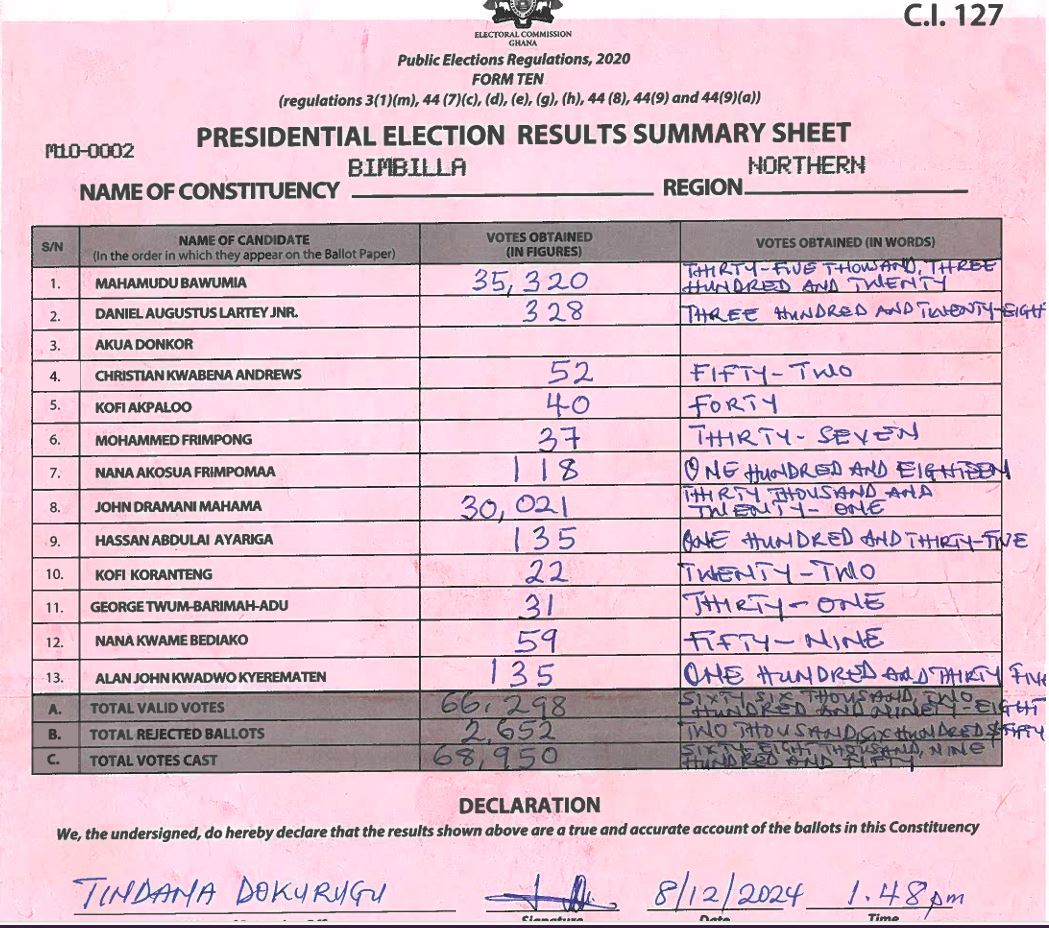 C.I. 127
ELECTORAL COMMISSION
GHANA
Public Elections Regulations, 2020
FORM TEN
(regulations 3(1)(m), 44 (7)(c), (d), (e), (g), (h), 44 (8), 44(9) and 44(9)(a))
PRESIDENTIAL ELECTION RESULTS SUMMARY SHEET
M10-0002
NAME OF CONSTITUENCY BIMBILLA REGION NORTHERN
S/N NAME OF CANDIDATE (In the order in which they appear on the Ballot Paper) VOTES OBTAINED (IN FIGURES) VOTES OBTAINED (IN WORDS)
1. MAHAMUDU BAWUMIA 35,320 THIRTY-FIVE THOUSAND, THREE HUNDRED AND TWENTY
2. DANIEL AUGUSTUS LARTEY JNR. 328 THREE HUNDRED AND TWENTY-EIGHT
3. AKUA DONKOR
4. CHRISTIAN KWABENA ANDREWS 52 FIFTY-TWO
5. KOFI AKPALOO 40 FORTY
6. MOHAMMED FRIMPONG 37 THIRTY-SEVEN
7. NANA AKOSUA FRIMPOMAA 118 ONE HUNDRED AND EIGHTEEN
8. JOHN DRAMANI MAHAMA 30,021 THIRTY THOUSAND AND TWENTY-ONE
9. HASSAN ABDULAI AYARIGA 135 ONE HUNDRED AND THIRTY-FIVE
10. KOFI KORANTENG 22 TWENTY-TWO
11. GEORGE TWUM-BARIMAH-ADU 31 THIRTY-ONE
12. NANA KWAME BEDIAKO 59 FIFTY-NINE
13. ALAN JOHN KWADWO KYEREMATEN 135 ONE HUNDRED AND THIRTY FIVE
A. TOTAL VALID VOTES 66,298 SIXTY SIX THOUSAND, TWO HUNDRED AND NINETY-EIGHT
B. TOTAL REJECTED BALLOTS 2,652 TWO THOUSAND, SIX HUNDRED & FIFTY
C. TOTAL VOTES CAST 68,950 SIXTY-EIGHT THOUSAND, NINE HUNDRED AND FIFTY
DECLARATION
We, the undersigned, do hereby declare that the results shown above are a true and accurate account of the ballots in this Constituency
TINDANA DOKURUGU 8/12/2024 1.48pm
Signature Date Time